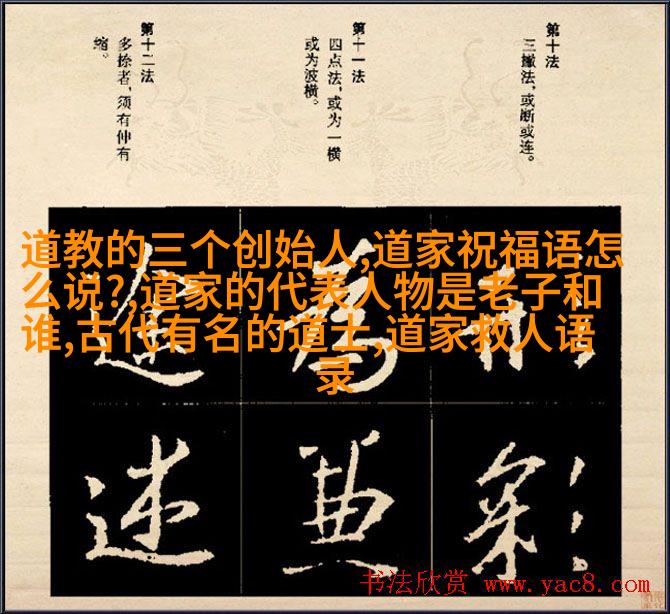 第十法
三撇法,或断或连。
第十一法
四点法,或为一横
或为波横。
第十二法
多捺者,须有仲有
缩。
道教的三个创始人,道家祝福语怎
么说?,道家的代表人物是老子和
谁,古代有名的道士,道家救人语
录
形
彩
為
進
书法欣赏 www.yac8.com